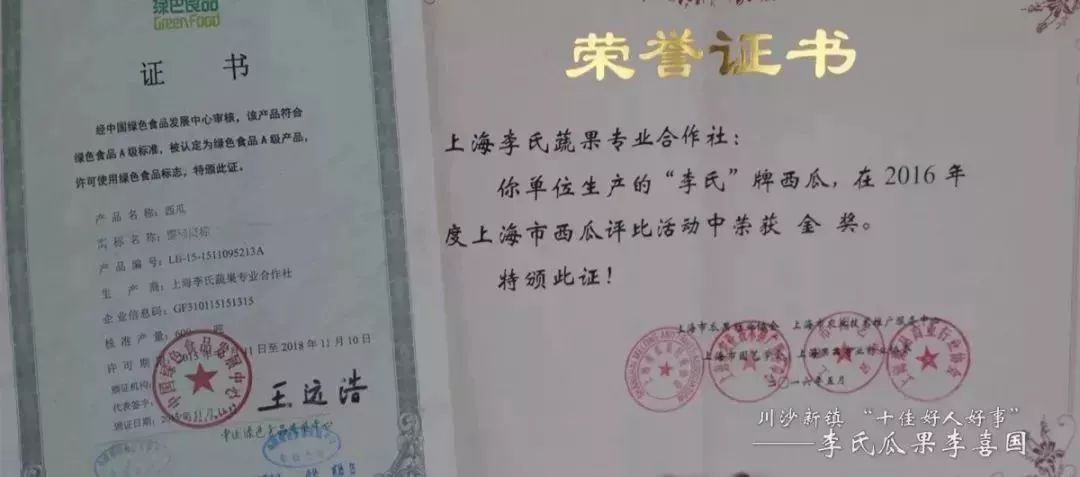 绿色食品
GreenFood
证 书
经中国绿色食品发展中心审核，该产品符合
绿色食品A级标准，被认定为绿色食品A级产品，
许可使用绿色食品标志，特颁此证。
产品名称：西瓜
商标名称：
产品编号：LB-15-1511095213A
生 产 商：上海李氏蔬果专业合作社
企业信息码：GF310115151315
核准产量：600
许可期 11日至2018年11月10日
颁证机构：
代表签字：王运浩
颁证日期：
中国绿色食品发展中心
荣誉证书
上海李氏蔬果专业合作社：
你单位生产的“李氏”牌西瓜，在2016年
度上海市西瓜评比活动中荣获 金 奖。
特颁此证！
上海市瓜果行业协会 上海市农业技术推广服务中心
上海市园艺学会
一六年五月
川沙新镇 “十佳好人好事”
——李氏瓜果李喜国